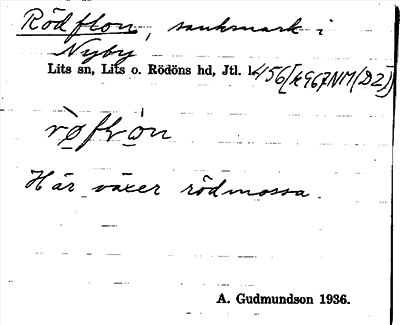 Rödflon, sankmark i
Nyby
Lits sn, Lits o. Rödöns hd, Jtl. l. 456[k967NM(D2)]
rø̀flòn
Här växer rödmossa.
A. Gudmundson 1936.